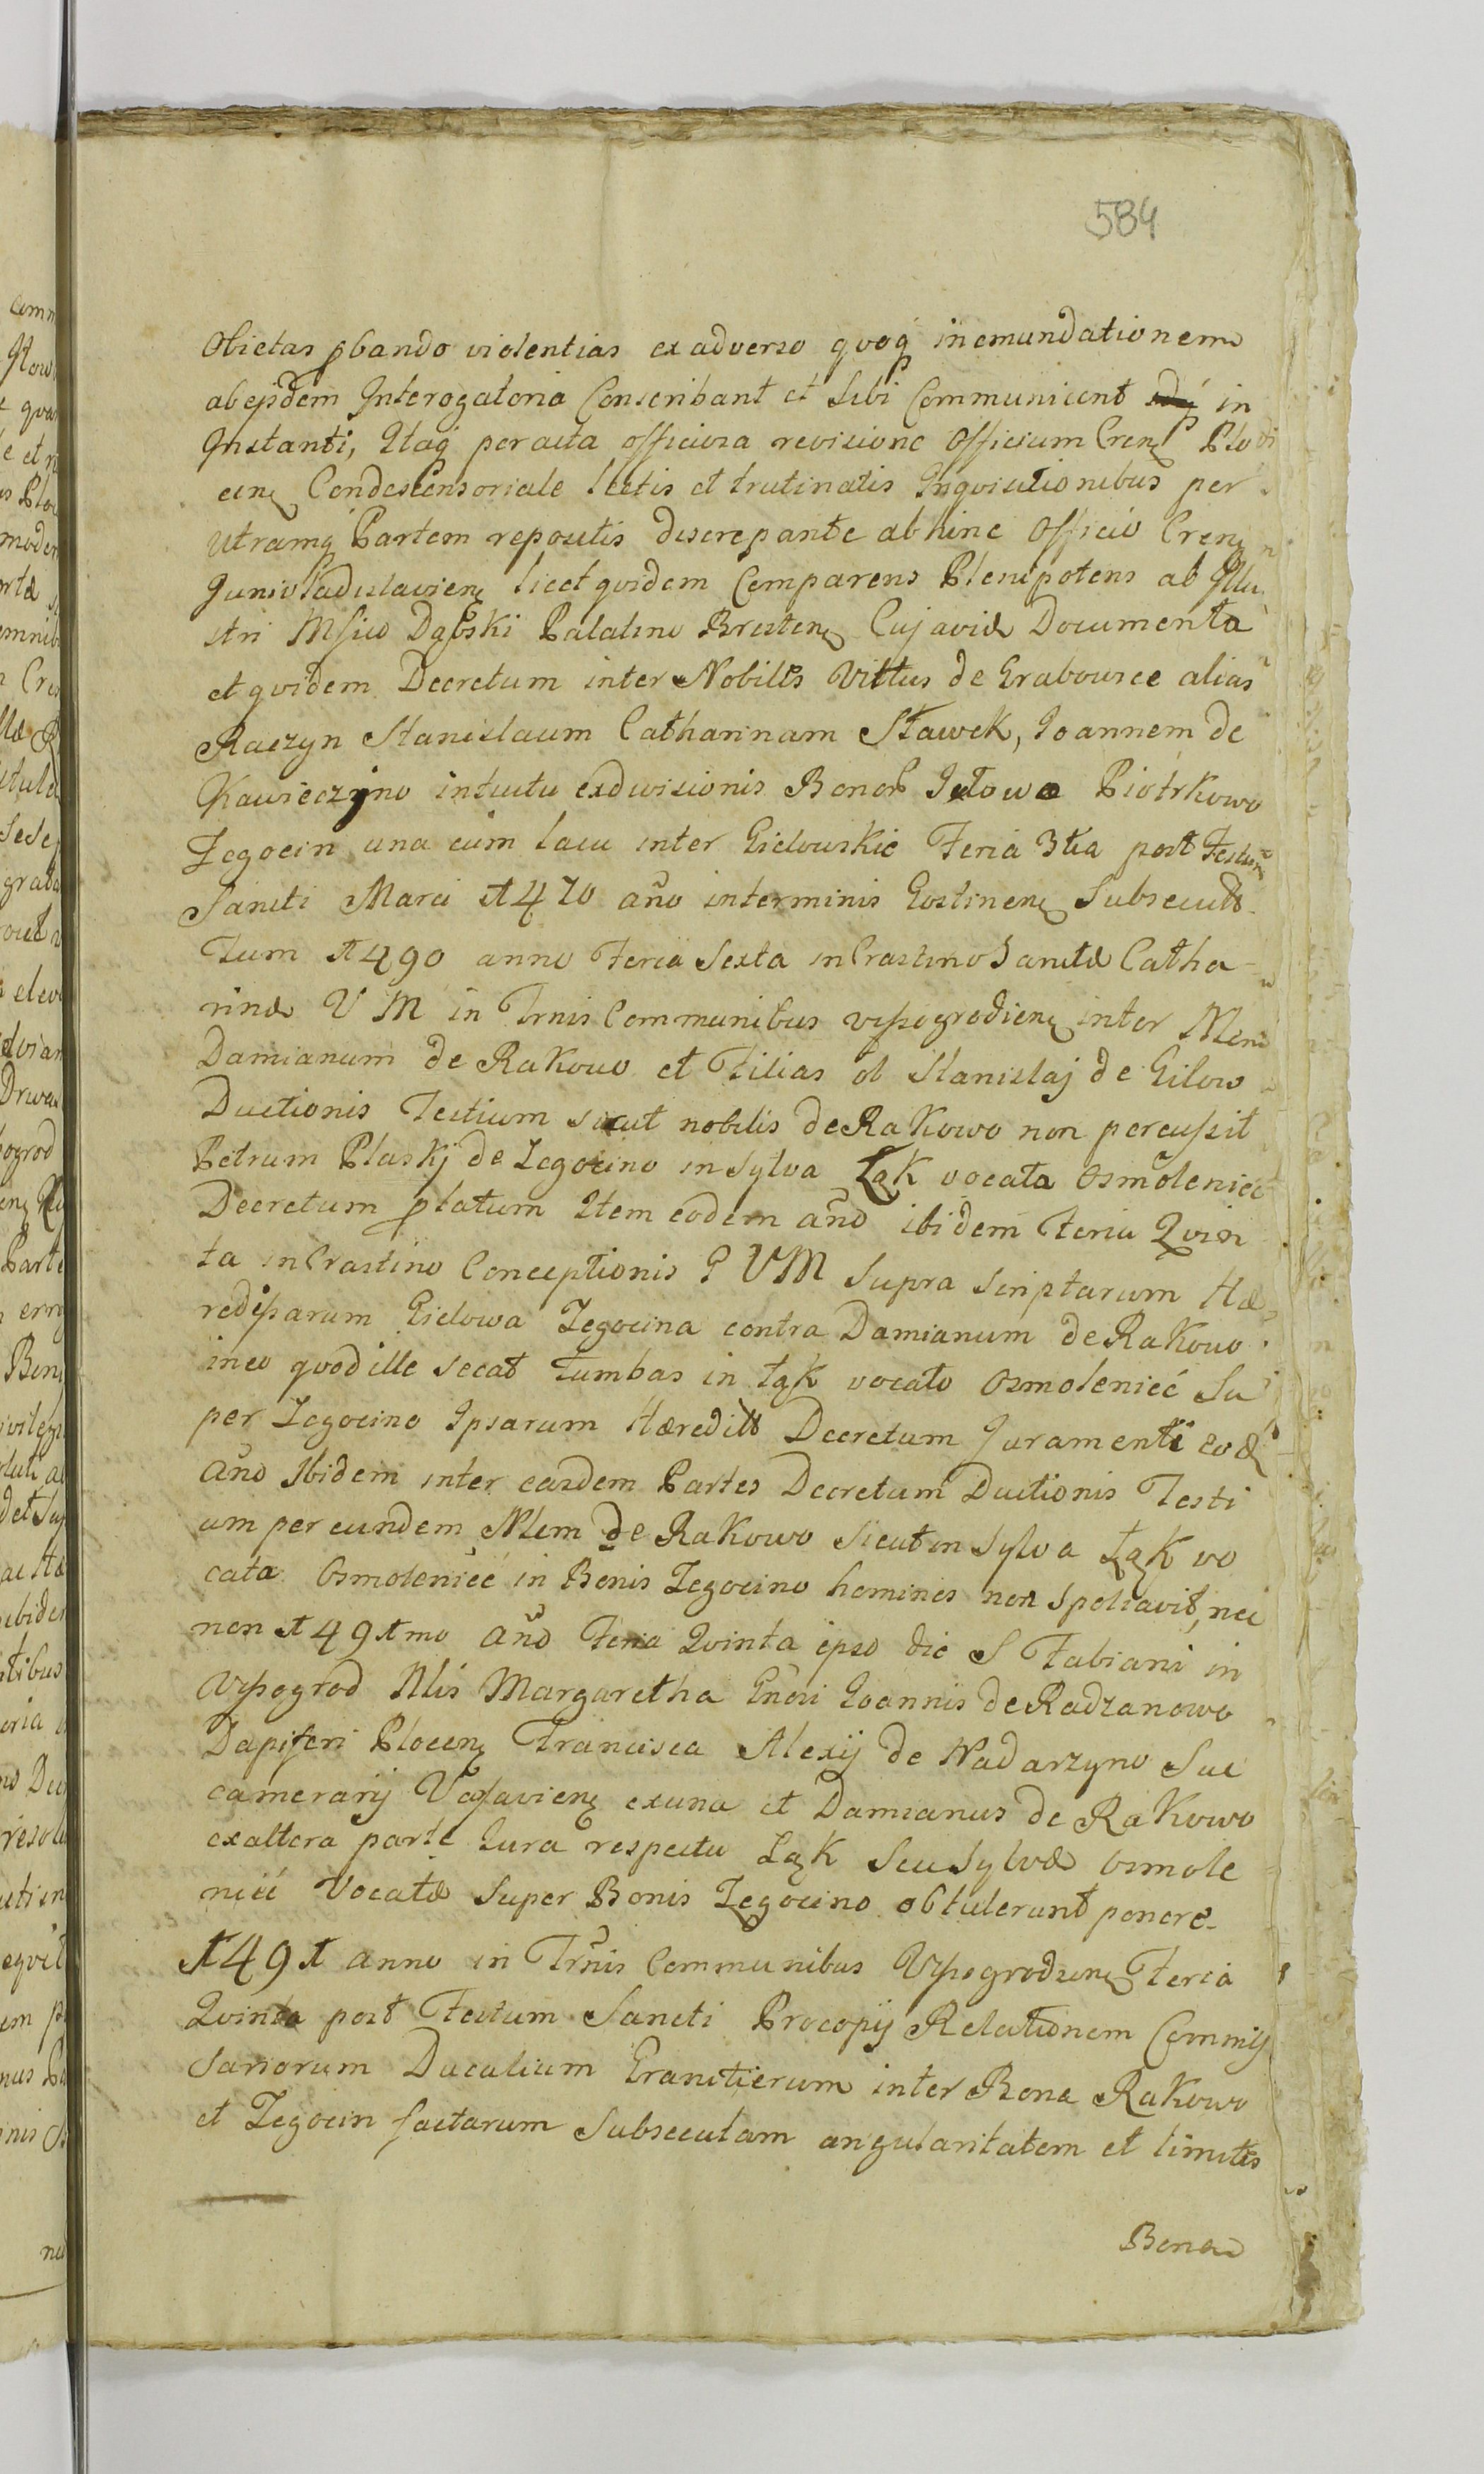 584
Obietas pbando violentias ex adverso qvoq inemundationem
ab ejsdem Interogatoria Conscribant et Sibi Communicent in
Instanti, Itaq peracta officiosa revisione Officium Cren Plo
cen Condescensoriale lectis et trutinatis Inqvisitionibus per
utramq Partem repositis discrepante ab hinc Officio Cren
Junivladislavien licet qvidem Comparens Plenipotens ab Illu
stri Mfico Dąbski Palatino Bresten Cujaviæ Documenta
et qvidem Decretum inter Nobiles Vittus de Grabowice alias
Raczyn Stanislaum Catharinam Sławek, Joannem de
Kawieczyno intuitu exdivisionis Bonor Piotrkowo
Zegocin una cum lacu inter Gielowskie Feria 3tia post Festum
Sancti Marci 1470 año interminis Gostinen Subsecutt
Tum 1490 anno Feria Sexta in Crastino Sanctæ Catha
rinæ V M in Trnis Communibus vyszogrodien inter
Damianum de Rakowo et Filias ol Stanislaj de Gilow
Ductionis Testium sicut nobilis de Rakowo non percussit
Petrum Pluskj de Zegocino in Sylva Łąk vocata Osmoleniec
Decretum platum Item eodem año ibidem Feria Qvin
ta in Crastino Conceptionis G VM Supra Scriptarum Hæ
redissarum Gielowa Zegocina contra Damianum de Rakowo
in eo qvod ille secat Tumbas in Łąk vocato Osmolenieć Su
per Zegocino Ipsarum Hæreditt Decretum Juramenti eod
año Ibidem inter easdem Partes Decretum Ductionis Testi
um per eundem Nlem de Rakowo Sicut in Sylva Łąk vo
cata Osmolenieć in Bonis Zegocino homines non Spoliavit, nec
non 1491mo año Feria Qvinta ipso die S Fabiani in
Wyszogrod Nlis Margaretha Gñosi Joannis de Radzanowo
Dapiferi Plocen Francisca Alexij de Nadarzyno Suc
camerarij Vařsavien ex una et Damianus de Rakowo
ex altera parte Jura respectu Łąk Seu Sylvæ Osmole
nieć Vocatæ Super Bonis Zegocino obtulerunt ponere
1491 anno in Trñis Communibus Wyszogrodzien Feria
Qvinta post Festum Sancti Procopij Relationem Commis
sariorum Ducalium Granitierum inter Bona Rakowo
et Zegocin factarum Subsecutam angularitatem et limites
Bona